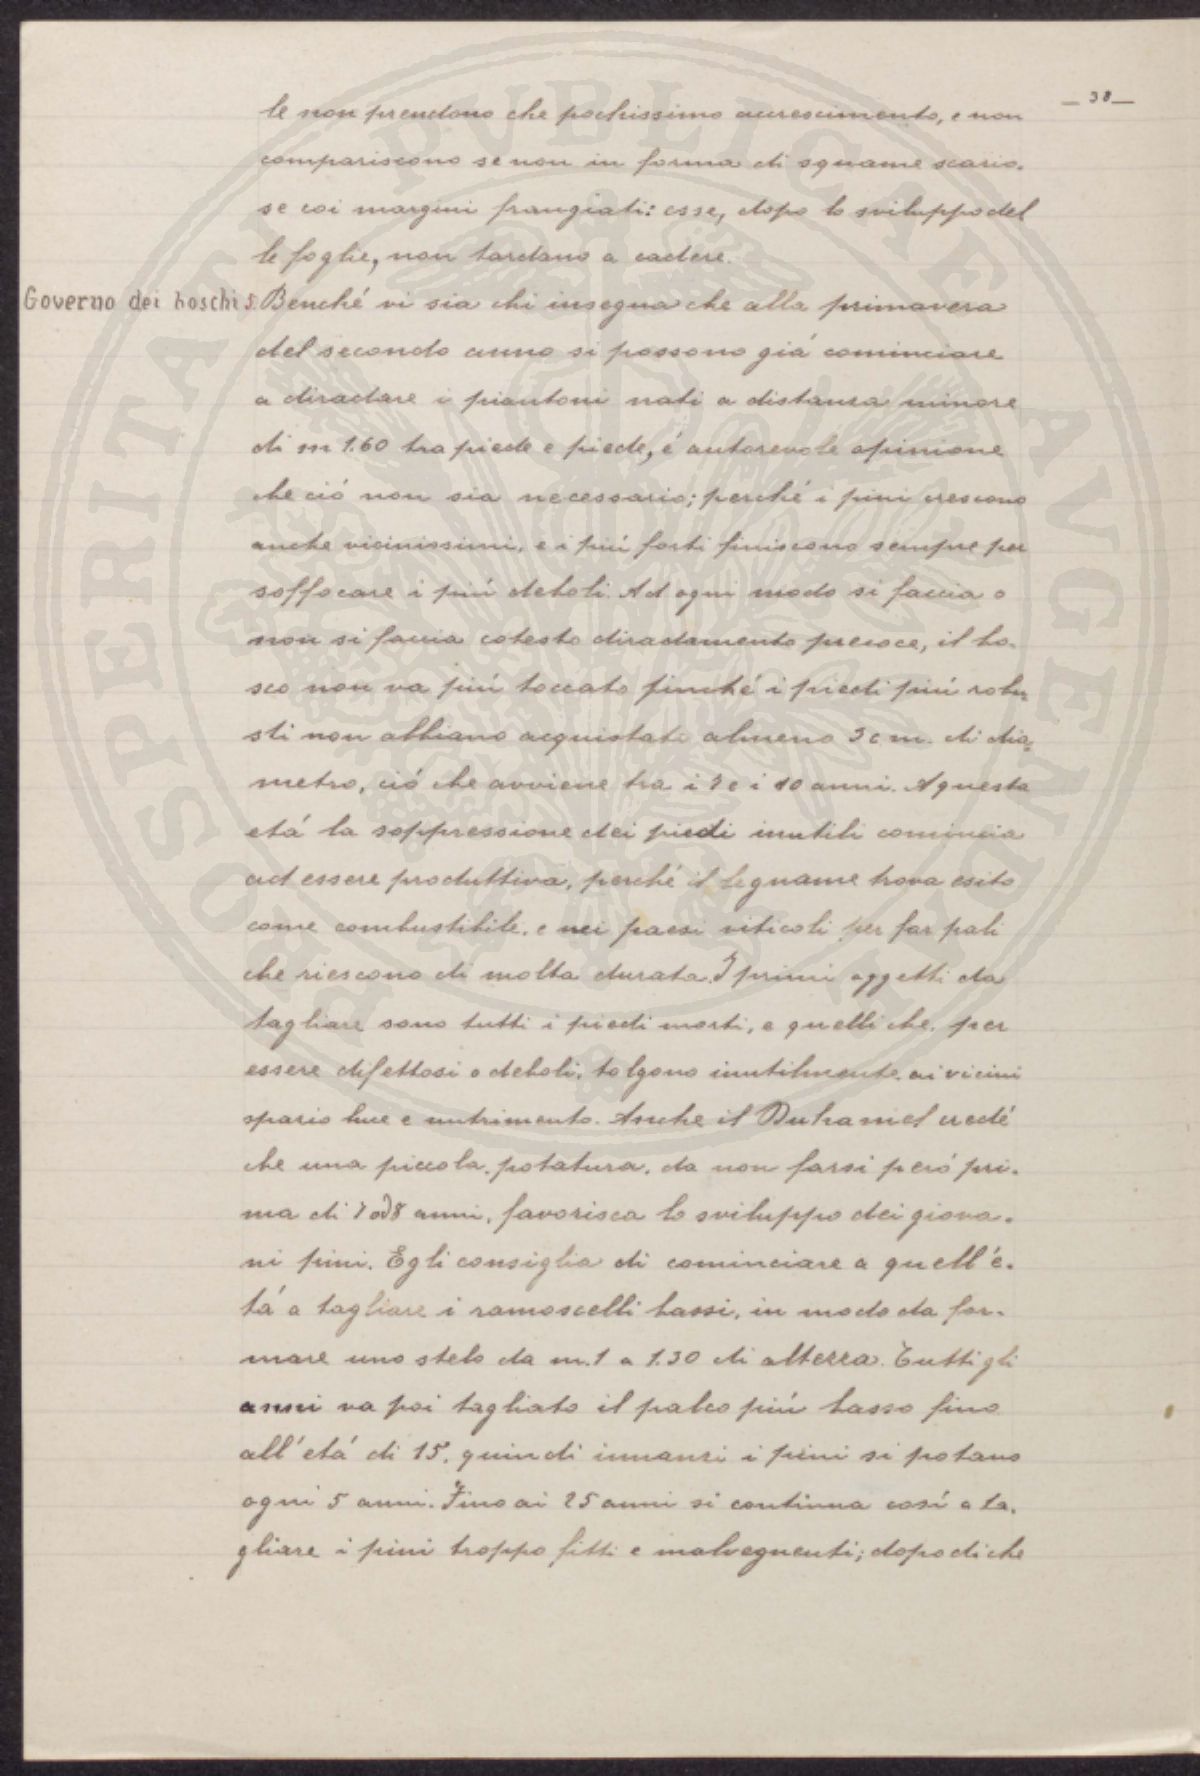 — 38 —
le non prendono che pochissimo accrescimento, e non
compariscono se non in forma di squame scario-
se coi margini frangiati: esse, dopo lo sviluppo del
le foglie, non tardano a cadere.
Governo dei boschi 5. Benché vi sia chi insegna che alla primavera
del secondo anno si possono giá cominciare
a diradare i piantoni nati a distanza minore
di m 1.60 tra piede e piede, é autorevole opinione
che ció non sia necessario; perché i pini crescono
anche vicinissimi, e i piú forti finiscono sempre per
soffocare i piú deboli. Ad ogni modo si faccia o
non si faccia cotesto diradamento precoce, il bo-
sco non va piú toccato finché i piedi piú robu-
sti non abbiano acquistato almeno 3 cm. di dia-
metro, ció che avviene tra i 7 e i 10 anni. A questa
etá la soppressione dei piedi inutili comincia
ad essere produttiva, perché il legname trova esito
come combustibile, e nei paesi viticoli per far pali
che riescono di molta durata. I primi oggetti da
tagliare sono tutti i piedi morti, e quelli che, per
essere difettosi o deboli, tolgono inutilmente ai vicini
spazio luce e nutrimento. Anche il Duhamel credé
che una piccola potatura, da non farsi peró pri-
ma di 7 od 8 anni, favorisca lo sviluppo dei giova-
ni pini. Egli consiglia di cominciare a quell'e-
tá a tagliare i ramoscelli bassi, in modo da for-
mare uno stelo da m. 1 a 1.30 di altezza. Tutti gli
anni va poi tagliato il palco piú basso fino
all'etá di 15, quindi innanzi i pini si potano
ogni 5 anni. Fino ai 25 anni si continua cosí a ta-
gliare i pini troppo fitti e malvegnenti; dopo di che
PROSPERITATI PVBLICAE AVGENDAE